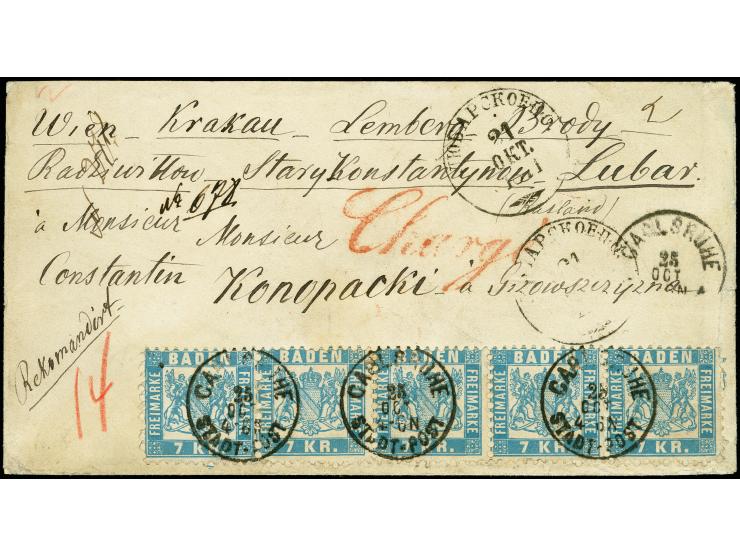 Wien - Krakau - Lemberg Brody -
Radziwillow Stary Konstantynow Lubar.
№ 672
(Rusland)
à Monsieur Monsieur
Chargé
Constantin Konopacki - à
Rekomandirt
14
21
ОКТ.
CARLSRUHE
25
OCT
BADEN BADEN BADEN BADEN BADEN
FREIMARKE FREIMARKE FREIMARKE FREIMARKE
7 KR. 7 KR. 7 KR. 7 KR. 7 KR.
CARLSRUHE
25
OCT
STADT-POST
CARLSRUHE
25
OCT
STADT-POST
CARLSRUHE
25
OCT
STADT-POST